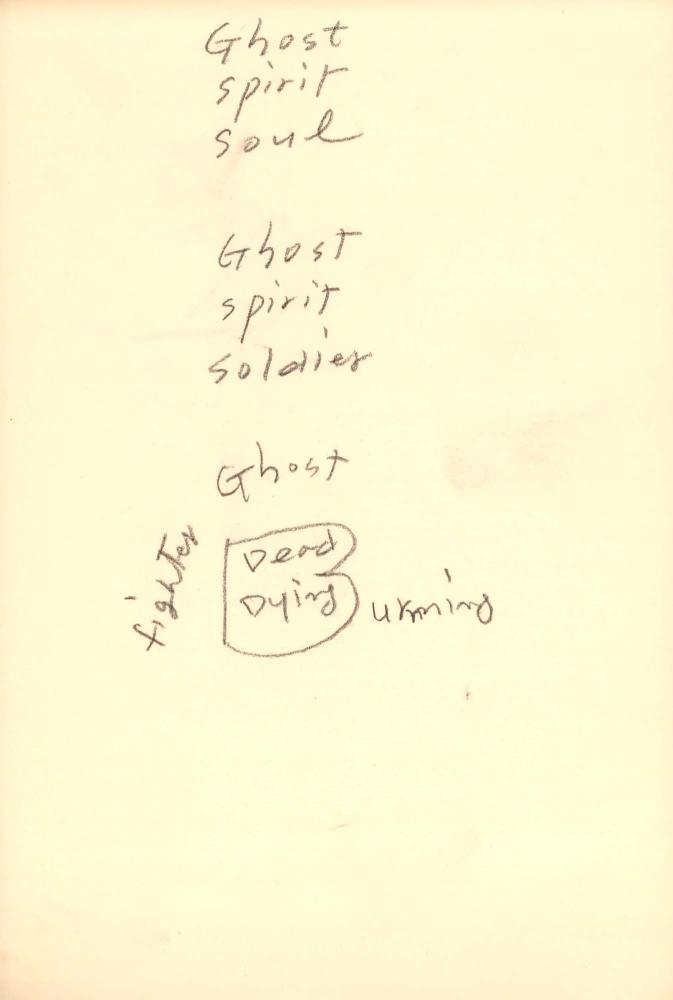 Ghost
spirit
soul
Ghost
spirit
soldier
Ghost
fighter
Dead
Dying
Burning